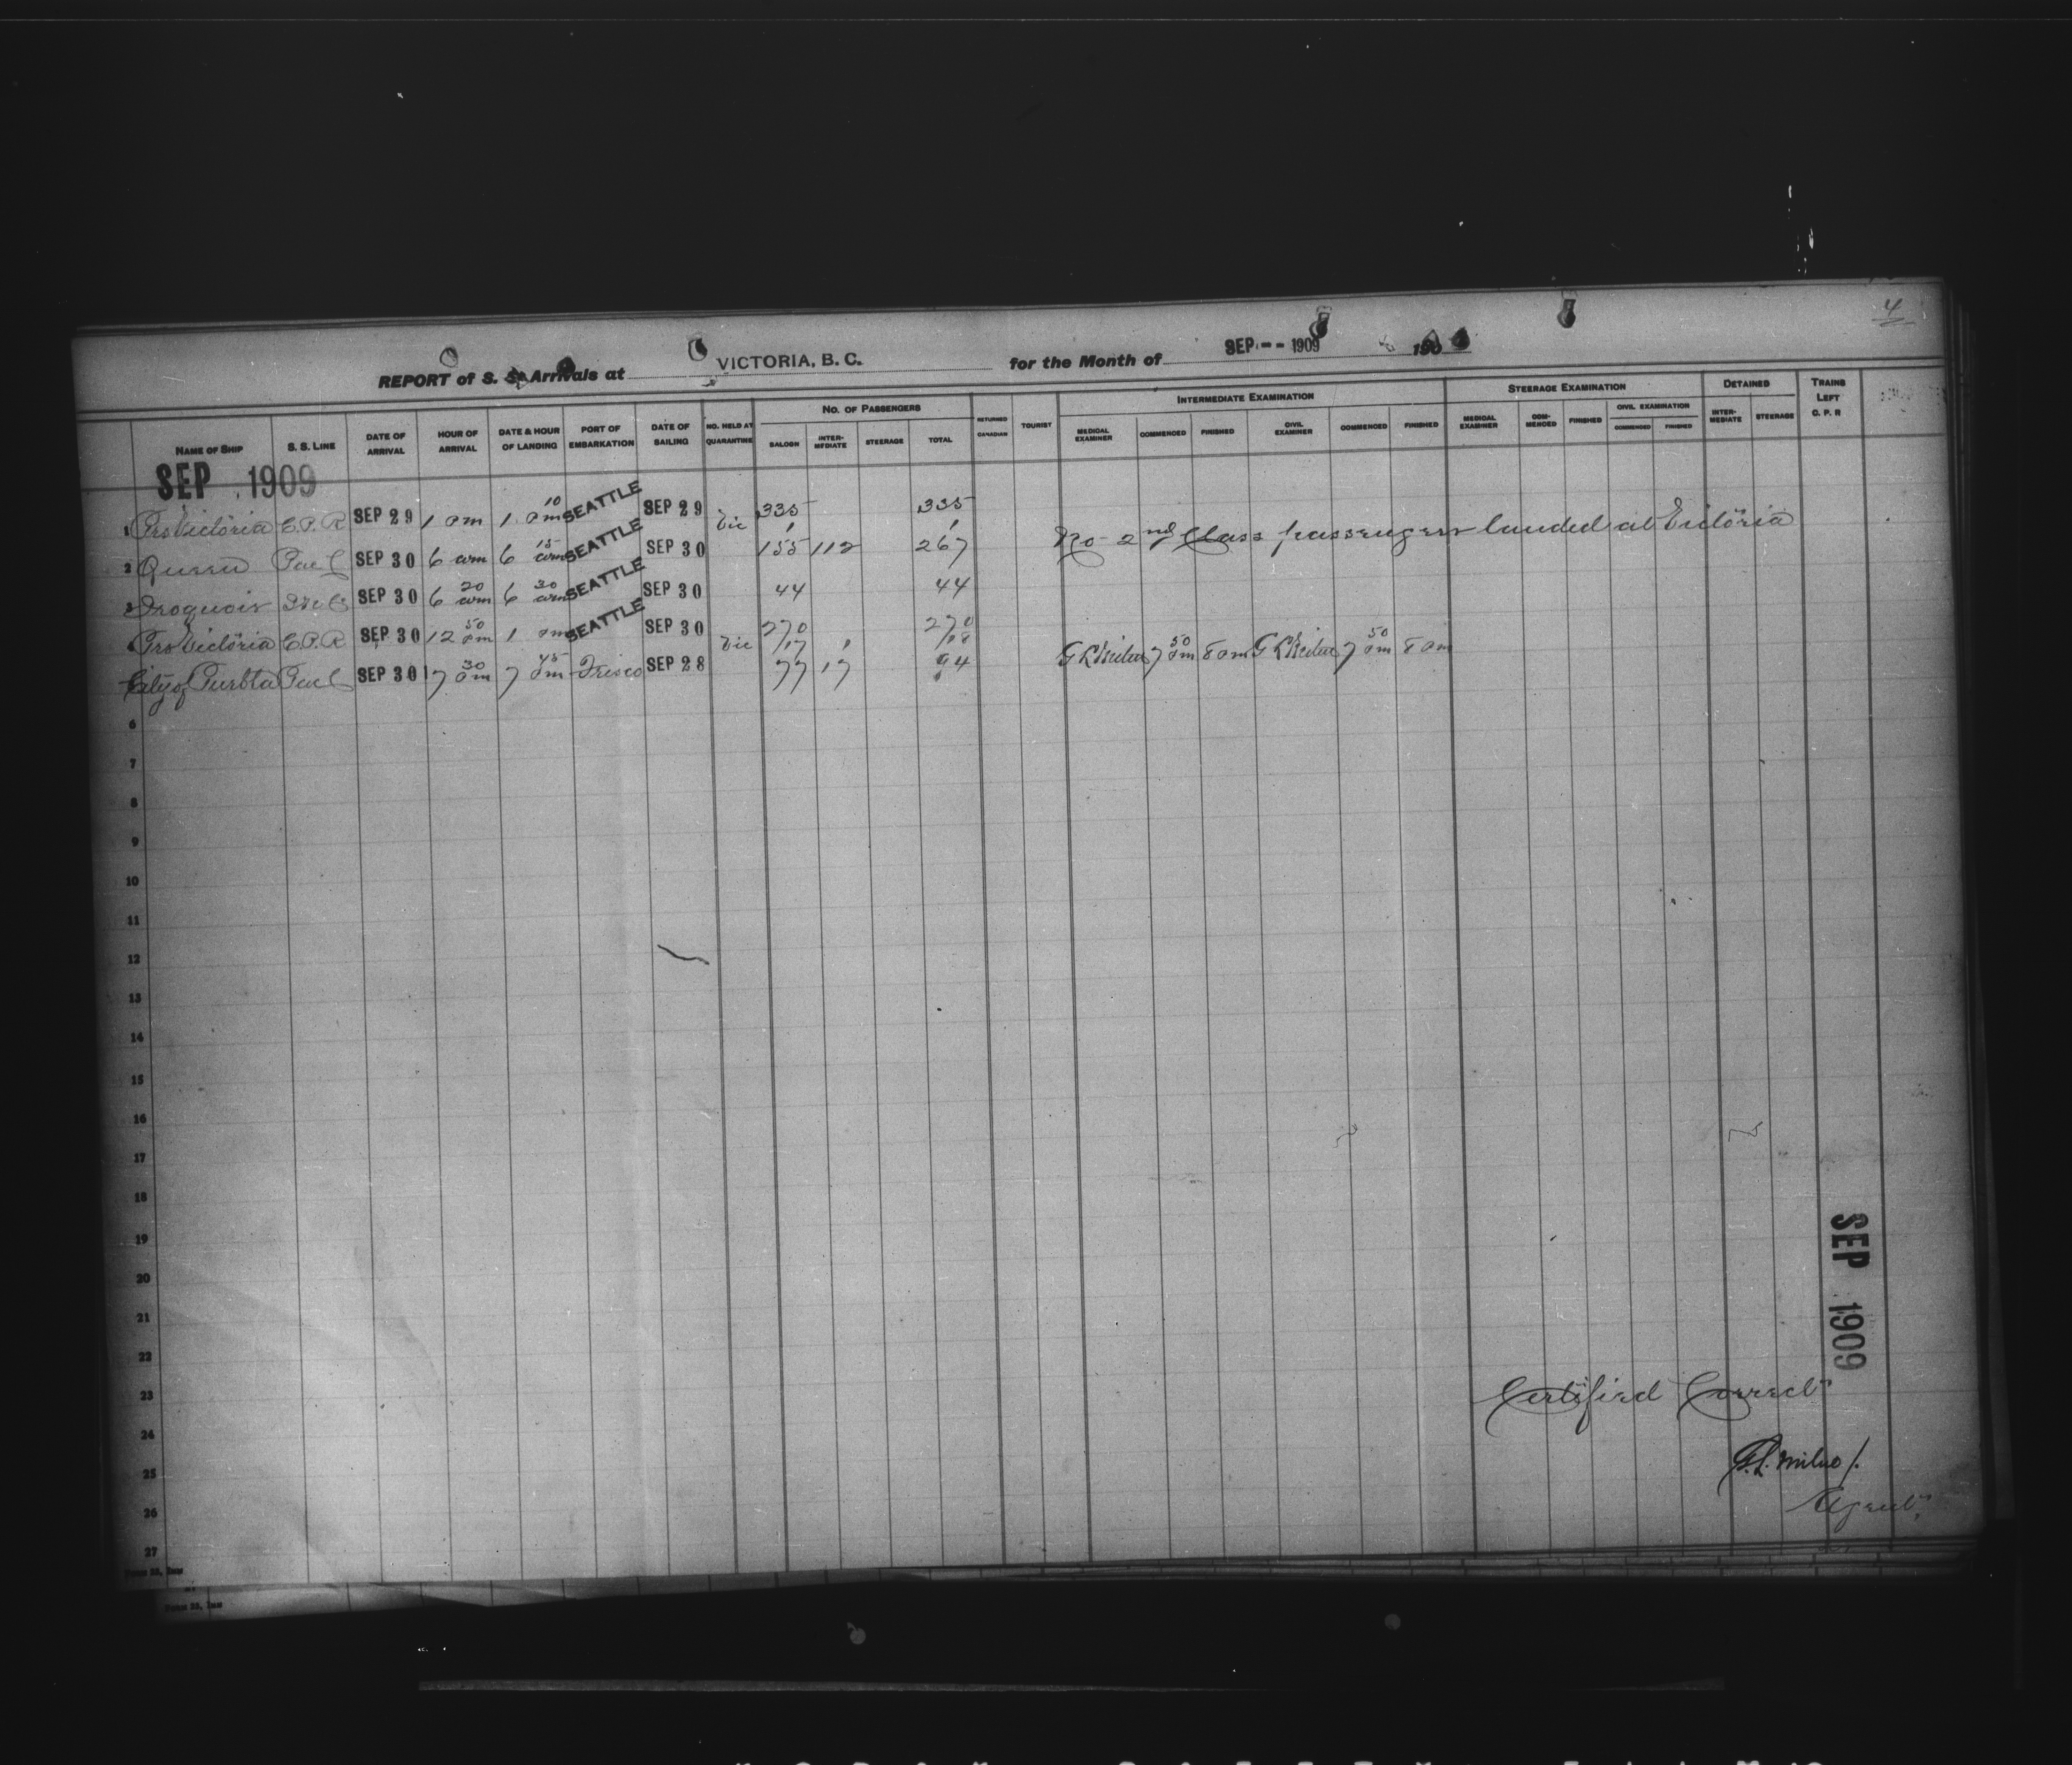 4
REPORT of S. S. Arrivals at VICTORIA, B. C. for the Month of SEP -- 1909 190
NAME OF SHIP S. S. LINE DATE OF ARRIVAL HOUR OF ARRIVAL DATE & HOUR OF LANDING PORT OF EMBARKATION DATE OF SAILING NO. HELD AT QUARANTINE NO. OF PASSENGERS SALOON INTERMEDIATE STEERAGE TOTAL RETURNED CANADIAN TOURIST INTERMEDIATE EXAMINATION MEDICAL EXAMINER COMMENCED FINISHED CIVIL EXAMINER COMMENCED FINISHED STEERAGE EXAMINATION MEDICAL EXAMINER COMMENCED FINISHED CIVIL EXAMINATION COMMENCED FINISHED DETAINED INTERMEDIATE STEERAGE TRAINS LEFT C. P. R
SEP 1909
1 Prs Victoria C.P.R SEP 29 1 pm 1 10 pm SEATTLE SEP 29 Vic 335 1 335 1
2 Queen Pac C SEP 30 6 am 6 15 am SEATTLE SEP 30 155 112 267 No 2nd Class passengers landed at Victoria
3 Iroquois SEP 30 6 20 am 6 30 am SEATTLE SEP 30 44 44
4 Prs Victoria C.P.R SEP 30 12 50 pm 1 pm SEATTLE SEP 30 Vic 270 270
City of Puebla Pac C SEP 30 7 30 pm 7 45 pm Frisco SEP 28 17 1 18 77 17 94 G L Milne 7 50 pm 8 pm G L Milne 7 50 pm 8 pm
6
7
8
9
10
11
12
13
14
15
16
17
18
19
20
21
22
23
24
25
26
27
SEP 1909
Certified Correct
G. L. Milne
Agent